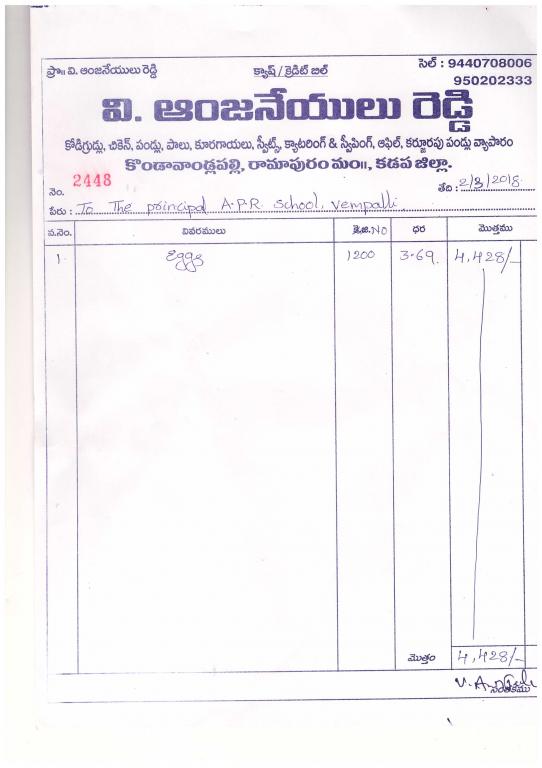 ప్రొ॥ వి. ఆంజనేయులు రెడ్డి క్యాష్ / క్రెడిట్ బిల్ సెల్ : 9440708006
950202333
వి. ఆంజనేయులు రెడ్డి
కోడిగ్రుడ్లు, చికెన్, పండ్లు, పాలు, కూరగాయలు, స్వీట్స్, క్యాటరింగ్ & స్వీపింగ్, ఆఫిల్, కర్జూరపు పండ్లు వ్యాపారం
కొండావాండ్లపల్లి, రామాపురం మం॥, కడప జిల్లా.
నెం. 2448 తేది : 2/3/2018
పేరు : To The principal A.P.R. School, vempalli.
వ.నెం. వివరములు కె.జి. NO ధర మొత్తము
1 Eggs 1200 3.69 4,428/-
మొత్తం 4,428/-
సంతకము